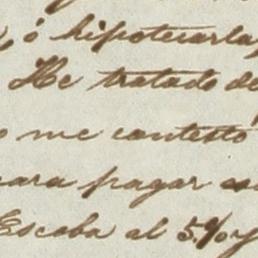 , ó hipotecarla,
He tratado de
o me contestó
para pagar
Escoba al 5%y